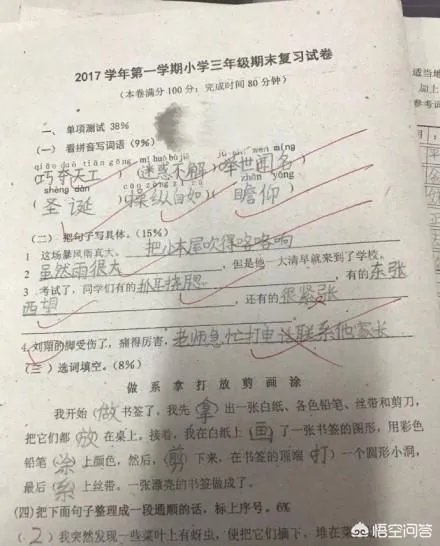 2017 学年第一学期小学三年级期末复习试卷
(本卷满分100分;完成时间80分钟)
适当地
加上
参考
一、单项测试 38%
(一) 看拼音写词语 (9%)
qiǎo duó tiān gōng mí huò bù jiě jǔ shì wén míng
(巧夺天工)(迷惑不解)(举世闻名)
shèng dàn cāo zòng zì rú zhān yǎng
(圣诞)(操纵自如)(瞻仰)
(二) 把句子写具体。(15%)
1 这场暴风雨真大。把小木屋吹得咯咯响
2 虽然雨很大,但是他一大清早就来到了学校。
3 考试了,同学们有的抓耳挠腮,有的东张
西望,还有的很紧张
4.刘翔的脚受伤了,痛得厉害,老师急忙打电话联系他家长
(三) 选词填空。(8%)
做 系 拿 打 放 剪 画 涂
我开始(做)书签了。我先(拿)出一张白纸、各色铅笔、丝带和剪刀,
把它们都(放)在桌上。接着,我在白纸上(画)了一张书签的图形,用彩色
铅笔(涂)上颜色,然后,(剪)下来,在书签的顶端(打)一个圆形小洞,
最后(系)上丝带。一张漂亮的书签做成了。
(四) 把下面句子整理成一段通顺的话,标上序号。6%
(2)我突然发现一些菜叶上有蚜虫,便把它们摘下,堆在菜
悟空问答